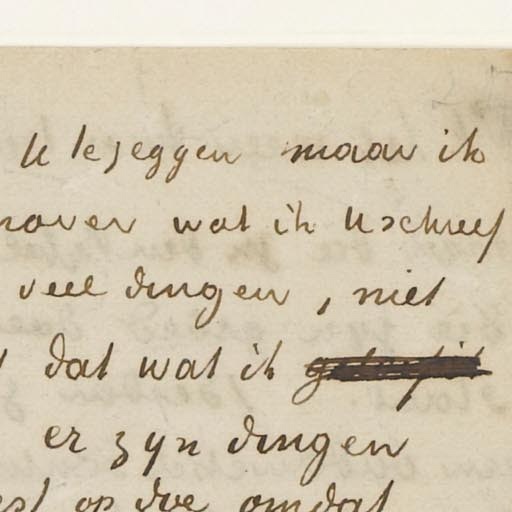 U te zeggen maar ik
over wat ik U schreef
veel dingen, niet
dat wat ik
er zyn dingen
op doe omdat